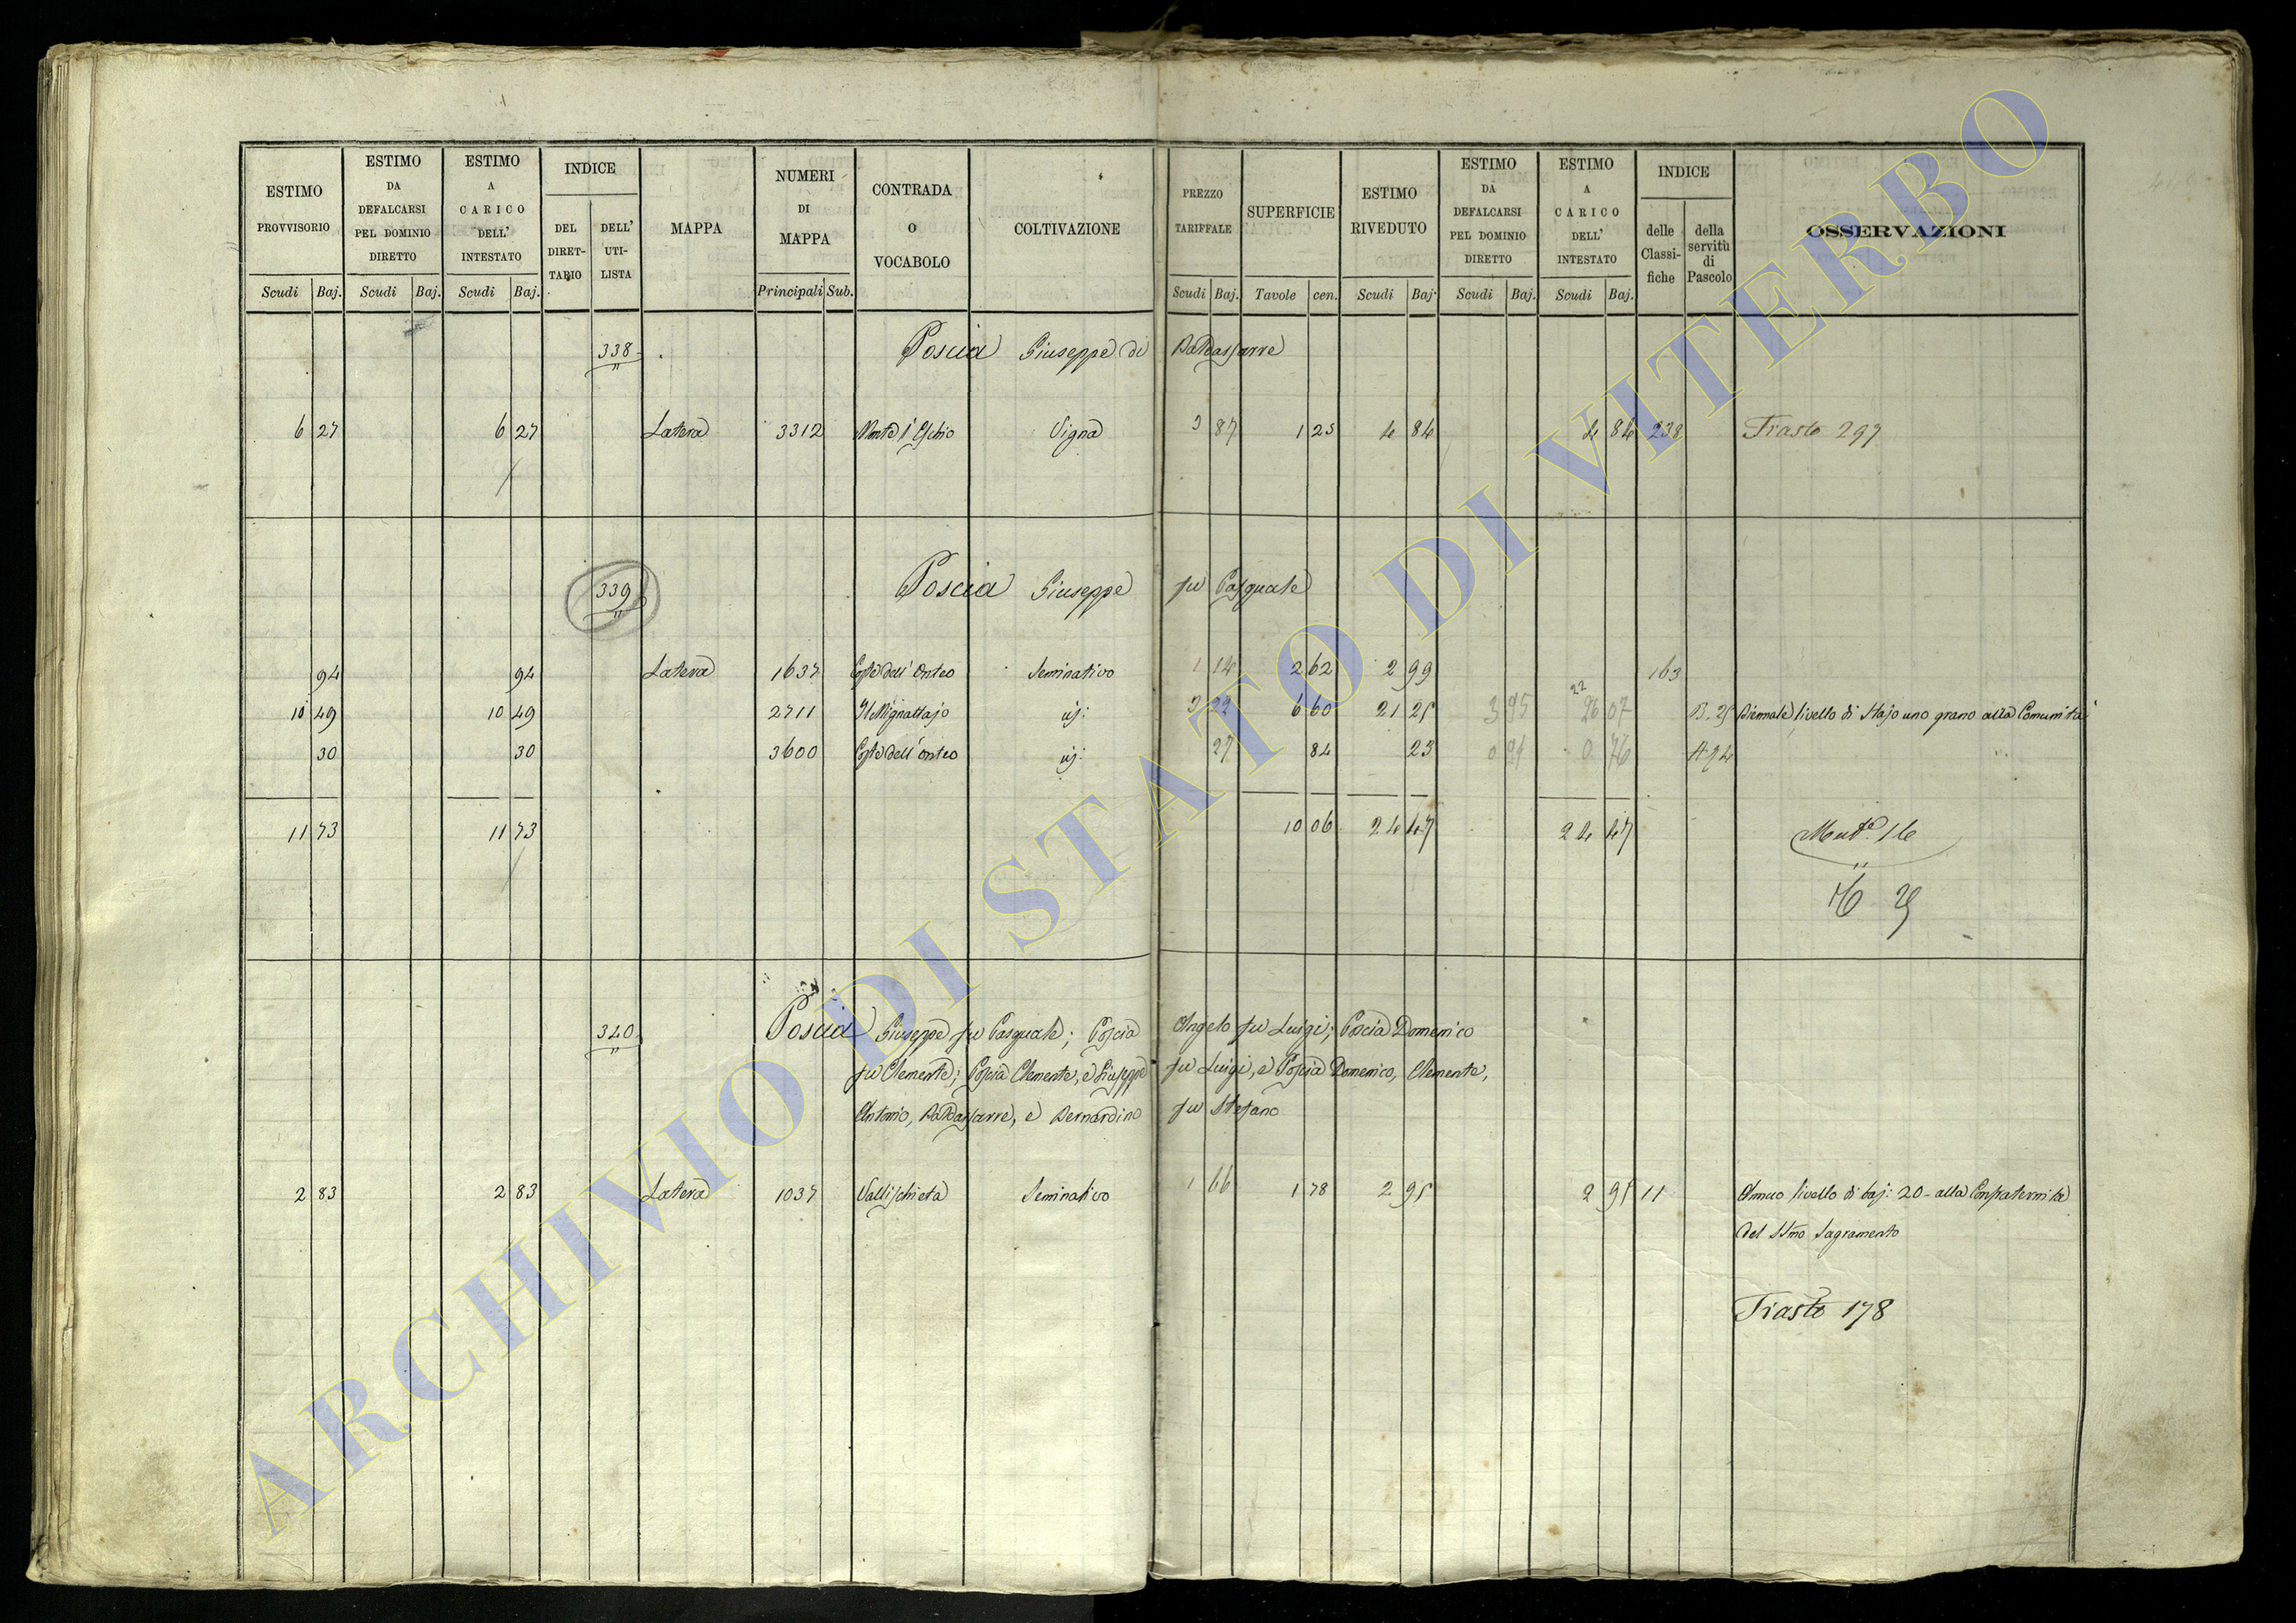 ESTIMO PROVVISORIO Scudi Baj.
ESTIMO DA DEFALCARSI PEL DOMINIO DIRETTO Scudi Baj.
ESTIMO A CARICO DELL' INTESTATO Scudi Baj.
INDICE DEL DIRETTARIO DELL' UTILISTA
MAPPA
NUMERI DI MAPPA Principali Sub.
CONTRADA O VOCABOLO
COLTIVAZIONE
PREZZO TARIFFALE Scudi Baj.
SUPERFICIE Tavole cen.
ESTIMO RIVEDUTO Scudi Baj.
ESTIMO DA DEFALCARSI PEL DOMINIO DIRETTO Scudi Baj.
ESTIMO A CARICO DELL' INTESTATO Scudi Baj.
INDICE delle Classifiche della servitù di Pascolo
OSSERVAZIONI
338 Poscia Giuseppe di Baldassarre
6 27 6 27 Latera 3312 Monte l'Eschio Vigna 3 87 1 25 4 84 4 84 238 Trasto 297
339 Poscia Giuseppe fu Pasquale
94 94 Latera 1637 Coste dell' Onteo Seminativo 1 14 2 62 2 99 163
10 49 10 49 2711 Il Mignattajo id: 3 22 6 60 21 25 3 95 22 26 07 B. 25 Biennale livello di Stajo uno grano alla Comunità
30 30 3600 Coste dell' Onteo id: 27 84 23 0 76
11 73 11 73 10 06 24 47 24 47 Mut.e 14
340 Poscia Giuseppe fu Pasquale; Poscia Angelo fu Luigi; Poscia Domenico
fu Clemente; Poscia Clemente, e Giuseppe fu Luigi, e Poscia Domenico, Clemente,
Antonio, Baldassarre, e Bernardino fu Stefano
2 83 2 83 Latera 1037 Vallischieta Seminativo 1 66 1 78 2 95 2 95 11 Annuo livello di baj: 20 - alla Confraternita
del SSmo Sagramento
Trasto 178
ARCHIVIO DI STATO DI VITERBO